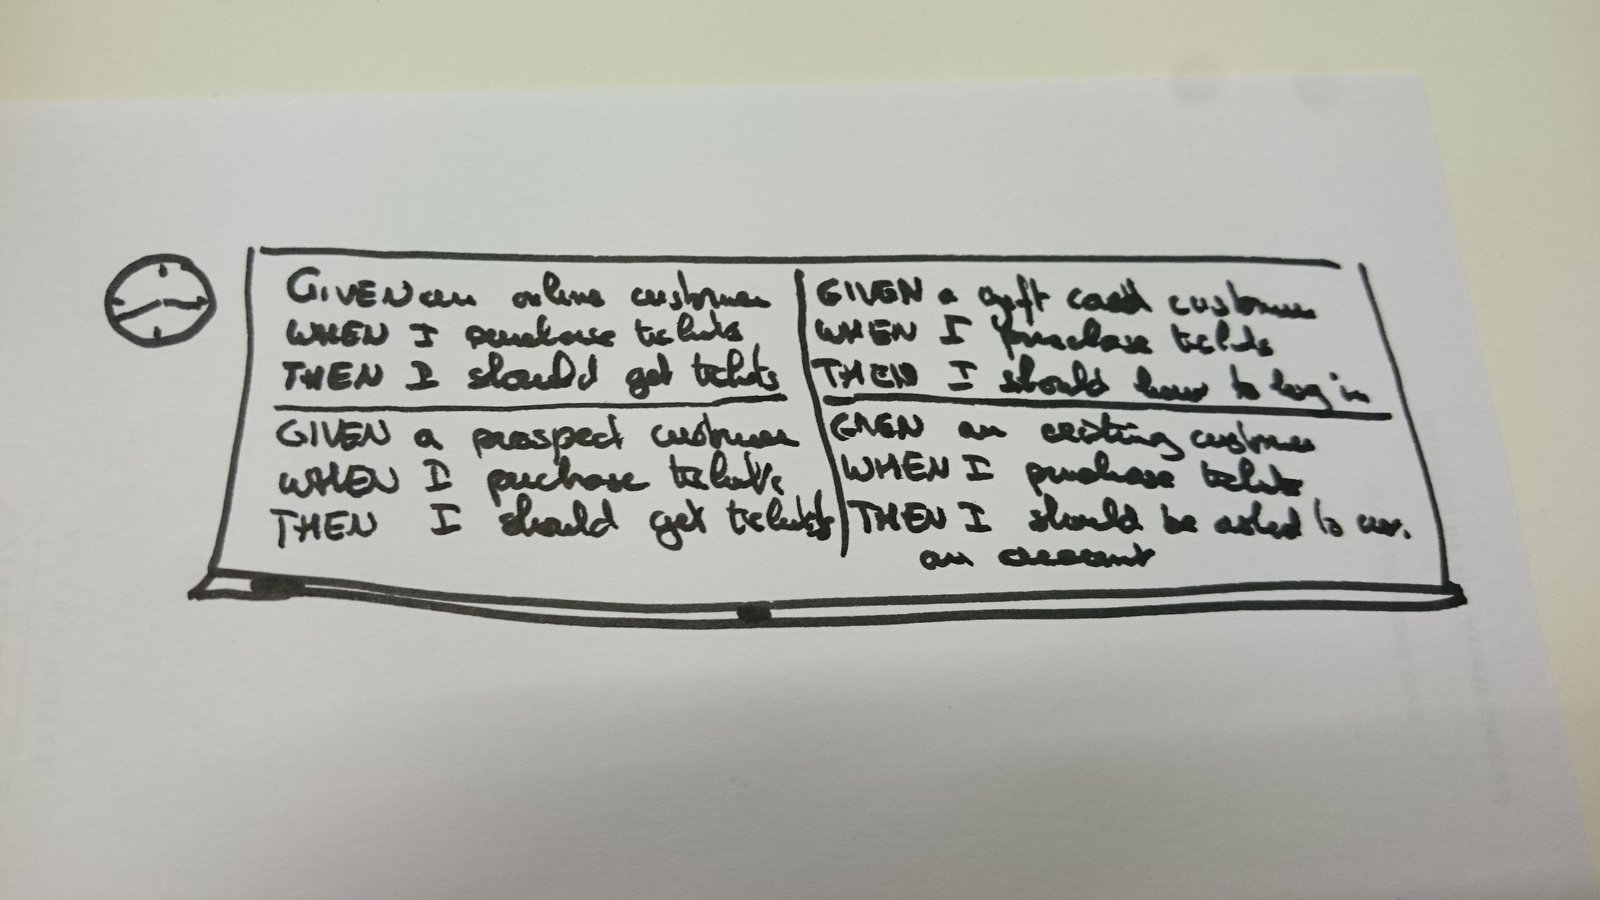 GIVEN an online customer
WHEN I purchase tickets
THEN I should get tickets
GIVEN a gift card customer
WHEN I purchase tickets
THEN I should have to log in
GIVEN a prospect customer
WHEN I purchase tickets
THEN I should get tickets
GIVEN an existing customer
WHEN I purchase tickets
THEN I should be asked to
an account